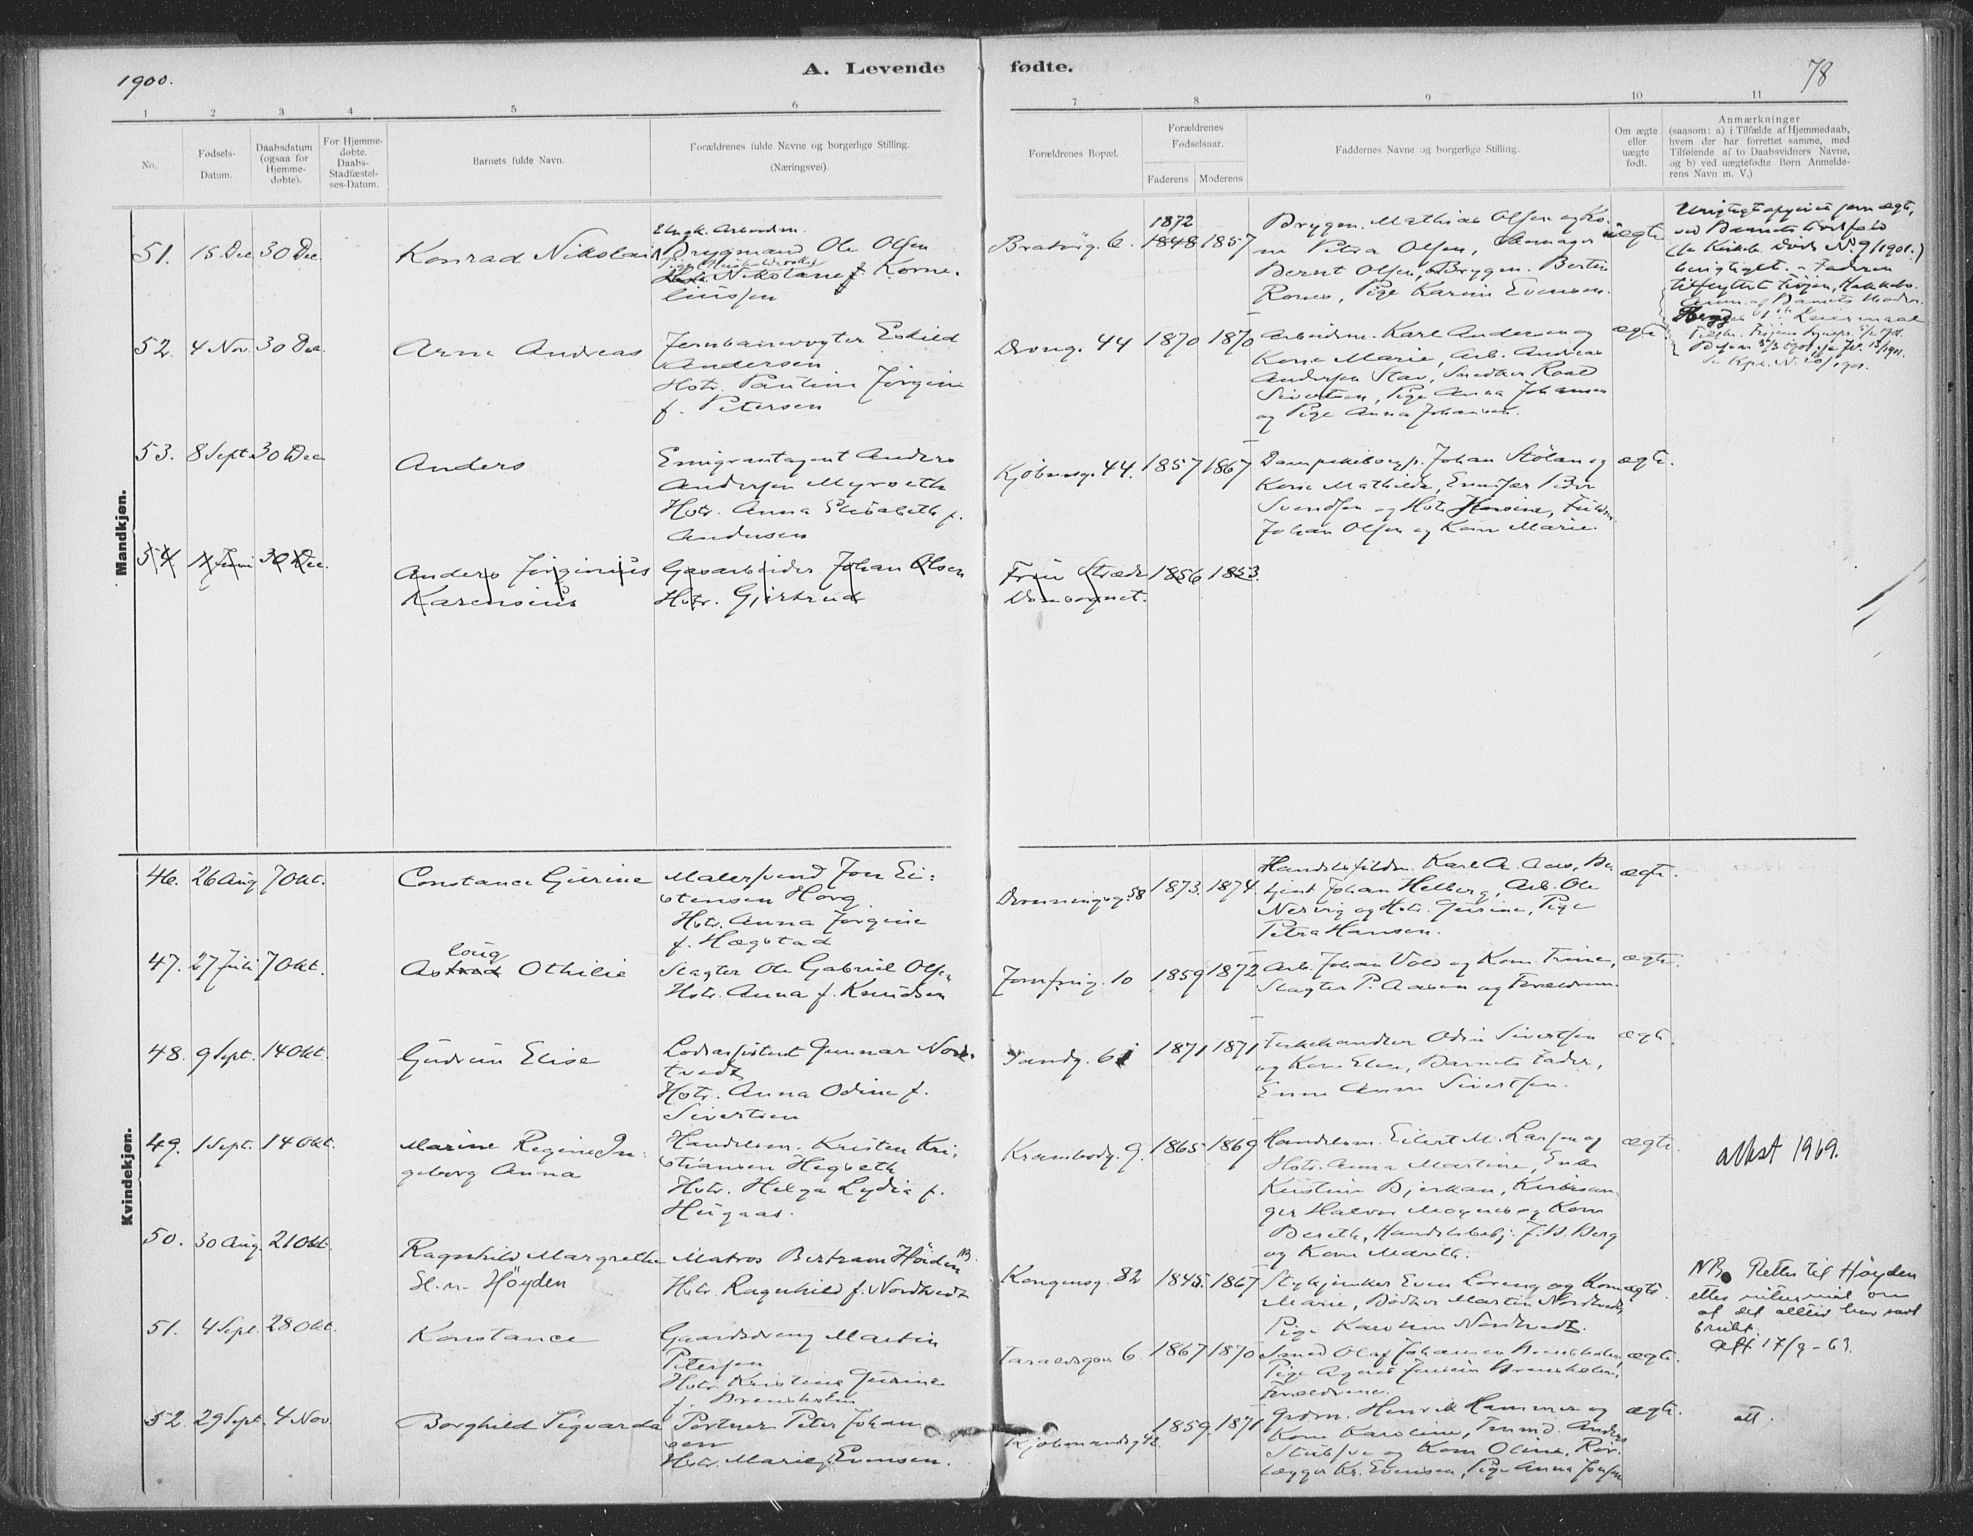 1900.
A. Levende fødte.
78
1 2 3 4 5 6 7 8 9 10 11
No.
Fødsels-
Datum.
Daabsdatum
(ogsaa for
Hjemme-
døbte).
For Hjemme-
døbte.
Daabs-
Stadfæstel-
ses-Datum.
Barnets fulde Navn.
Forældrenes fulde Navne og borgerlige Stilling.
(Næringsvei).
Forældrenes Bopæl.
Forældrenes
Fødselsaar.
Faderens Moderens
Faddernes Navne og borgerlige Stilling.
Om ægte
eller
uægte
født.
Anmærkninger
(saasom: a) i Tilfælde af Hjemmedaab,
hvem der har forrettet samme, med
Tilføiende af to Daabsvidners Navne,
og b) ved uægtefødte Børn Anmelde-
rens Navn m. V.)
Mandkjøn.
51. 15 Dec 30 Dec. Konrad Nikolai
Ungk. Arbeidsm.
Brygmand Ole Olsen
Nikoline f. Korne-
liussen
Bratørg. 6. 1872 1848 1857
Brygm. Mathias Olsen og Ko-
ne Petra Olsen,
Bernt Olsen, Brygm. Bertin
Rones, Pige Karin Evensen.
uægte
Urigtigt opgivet som ægte,
ved Barnets Dødsfald
52. 4 Nov. 30 Dec. Arne Andreas
Jernbanevogter Eskild
Andersen
Hstr. Pauline Jørgine
f. Petersen
Drong. 44 1870 1870
Arbeidsm. Karl Andersen og
Kone Marie, Arb. Andreas
Andersen Stav, Snedker Roald
Sivertsen, Pige Anna Johansen
og Pige Anna Johansen.
ægte
53. 8 Sept. 30 Dec Anders
Emigrantagent Anders
Andersen Myrseth
Hstr. Anna Elisabeth f.
Andersen
Kjøbmg. 44. 1857 1867
Dampskibsexp. Johan Stølan og
Kone Mathilde, Peder
Svendsen og Hstr.
Johan Olsen og Kone Marie.
ægte.
54 1 Juni 30 Dec. Anders Jørginius
Karensius
Gasarbeider Johan Olsen
Hstr. Gjertrud
Frue Stræde
Domsognet.
1856 1853.
Kvindekjøn.
46. 26 Aug 7 Okt. Constance Gurine
Malersvend Jon Ei-
stensen Horg
Hstr. Anna Jørgine
f. Hægstad
Dronningsg. 58 1873. 1874.
Handelsfuldm. Karl A. Aas, Be-
tjent Johan Helberg, Arb. Ole
Nervig og Hstr. Gurine, Pige
Petra Hansen.
ægte.
47. 27 Juli 7 Okt. Aslaug Othilie
Slagter Ole Gabriel Olsen
Hstr. Anna f. Knudsen
Jomfrug. 10 1859 1872
Arb. Johan Vold og Kone Trine,
Slagter P. Aasen og Forældrene.
ægte.
48. 9 Sept. 14 Okt. Gudrun Elise
Lodsassistent Gunnar Nord-
tvedt
Hstr. Anna Odine f.
Sivertsen
Sandg. 61 1871 1871
Fiskehandler Odin Sivertsen
og Kone Elen, Barnets Fader,
Enke Anne Sivertsen.
ægte.
49. 1 Sept. 14 Okt. Marine Regine In-
geborg Anna
Handelsm. Kristen Kri-
stiansen Hegseth
Hstr. Helga Lydia f.
Haugaas.
Krambodg. 9. 1865. 1869
Handelsm. Eilert M. Larsen og
Hstr. Anna Martine, Enke
Kirstine Bjerkan, Kirkesan-
ger Halvor Magnus og Kone
Berith, Handelsbetj. J. B. Berg
og Kone Marith.
ægte.
attest 1969.
50. 30 Aug. 21 Okt. Ragnhild Margrethe
Sl.n. Höyden
Matros Bertram Höiden NB.
Hstr. Ragnhild f. Nordtvedt
Kongensg. 82 1845. 1867
Stykjunker Even Loreng og Kone
Marie, Bødker Martin Nordtvedt,
Pige Karoline Nordtvedt.
ægte.
NB. Rettet til Høyden
etter
at det alltid har vært
brukt.
Att 17/9-63.
51. 4 Sept. 28 Okt. Konstance
Gaardsdreng Martin
Petersen
Hstr. Kristine Gurine
f. Brensholm
Taraldsgaar. 6 1867 1870
Svend Olaf Johansen
Pige Agnes
Forældrene.
ægte.
52. 29 Sept. 4 Nov. Borghild Sigvarda
Portner Peter Johan-
sen
Hstr. Marie f. Evensen.
Kjøbmandsg. 42 1859. 1871
Grosm. Henrik Hammer og
Kone Karoline, Tømmerm. Anders
Stubsve og Kone Oline, Rør-
lægger Kr. Evensen, Pige Anna Jensen
ægte.
att.